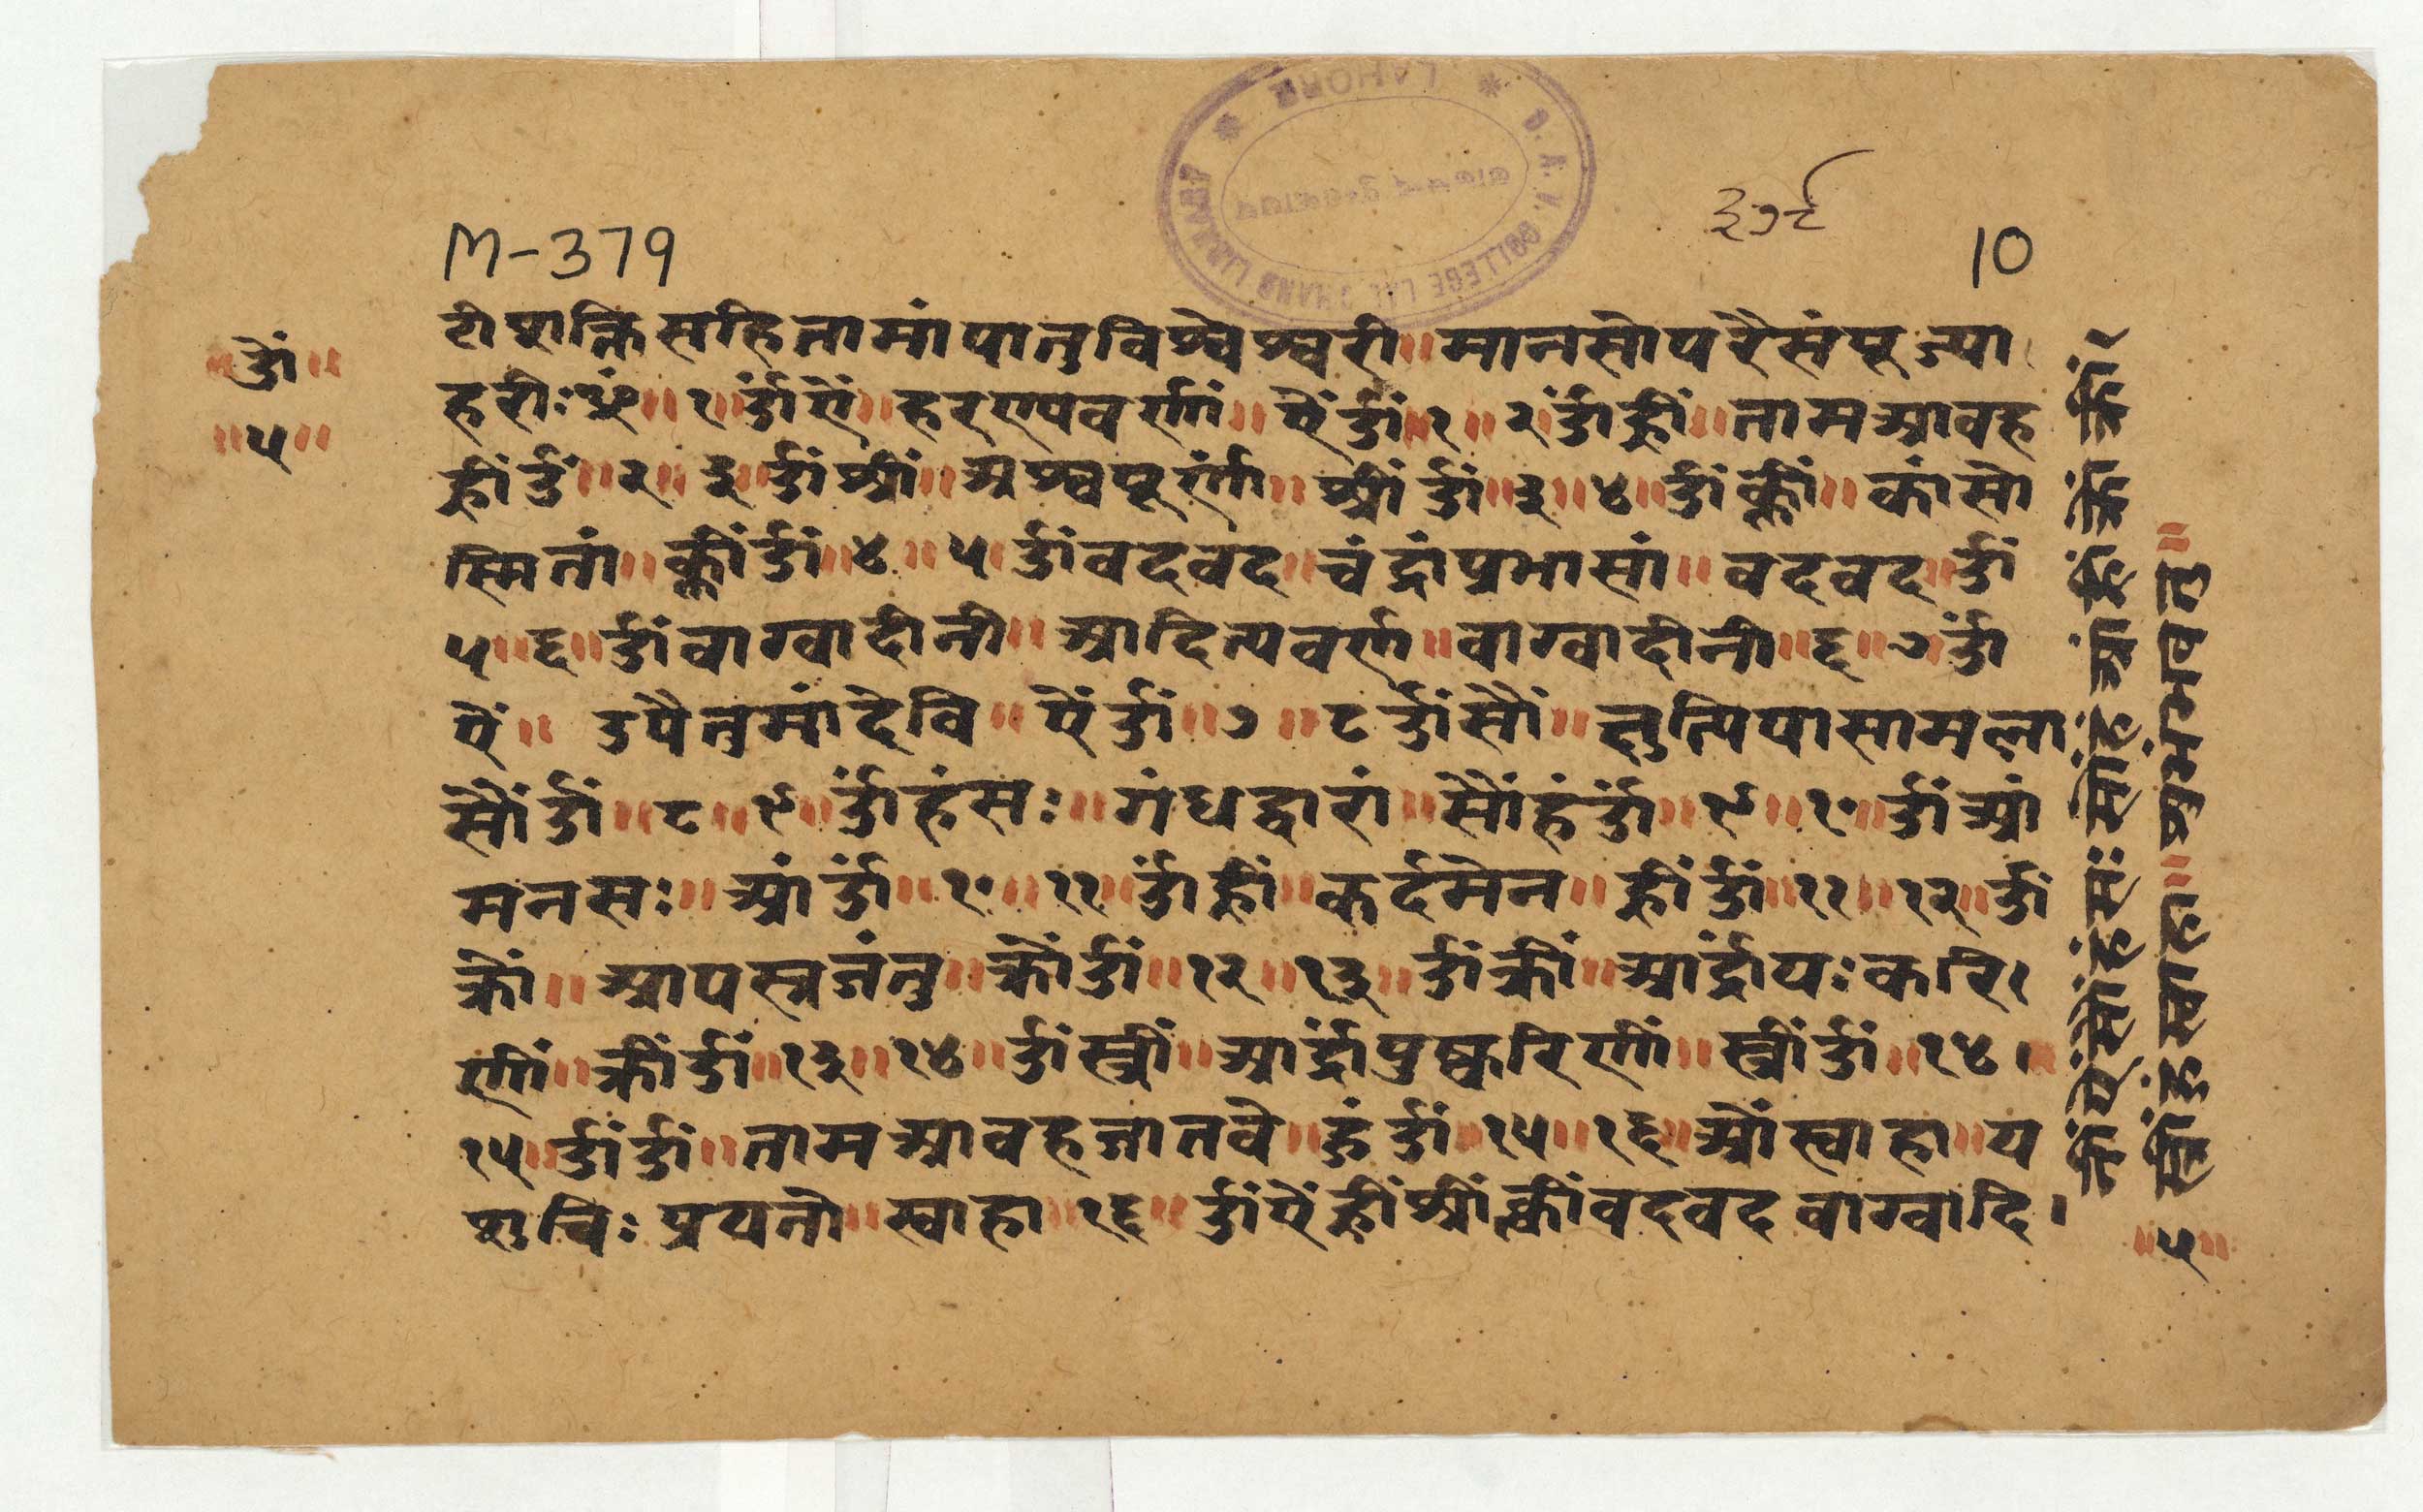 M-379
३७९
10
ॐ
॥५॥
टीशक्तिसहितामांपातुविश्वेश्वरी॥मानसोपरैसंपूज्या
हरीःॐ॥१ॐऐं॥हरण्यवर्णां॥ऐंॐ१॥२ॐह्रीं॥तामआवह
ह्रींॐ॥२॥३॥ॐश्रीं॥अश्वपूर्णां॥श्रींॐ॥३॥४॥ॐक्लीं॥कांसो
स्मितां॥क्लींॐ॥४॥५ॐवदवद॥चंद्रांप्रभासां॥वदवद॥ॐ
५॥६॥ॐवाग्वादीनी॥आदित्यवर्णा॥वाग्वादीनी॥६॥७ॐ
ऐं॥उपैतुमांदेवि॥ऐंॐ॥७॥८ॐसौं॥क्षुत्पिपासामला
सौंॐ॥८॥९॥ॐहंसः॥गंधद्वारां॥सौंहंॐ॥९॥१०॥ॐआं
मनसः॥आंॐ॥१०॥११ॐह्रीं॥कर्दमेन॥ह्रींॐ॥११॥१२॥ॐ
क्रौं॥आपस्त्रजंतु॥क्रौंॐ॥१२॥१३॥ॐक्रीं॥आर्द्रांयःकरि।
णीं॥क्रींॐ॥१३॥१४॥ॐस्त्रीं॥आर्द्रांपुष्करिणीं॥स्त्रींॐ॥१४।
१५॥ॐॐ॥तामआवहजातवे॥ॐ१५॥१६॥ओंस्वाहा॥य
शुचिःप्रयतो॥स्वाहा॥१६॥ॐऐंह्रींश्रींक्लींवदवदवाग्वादि।
॥५॥
D. A. V. COLLEGE LAL CHAND LIBRARY
LAHORE